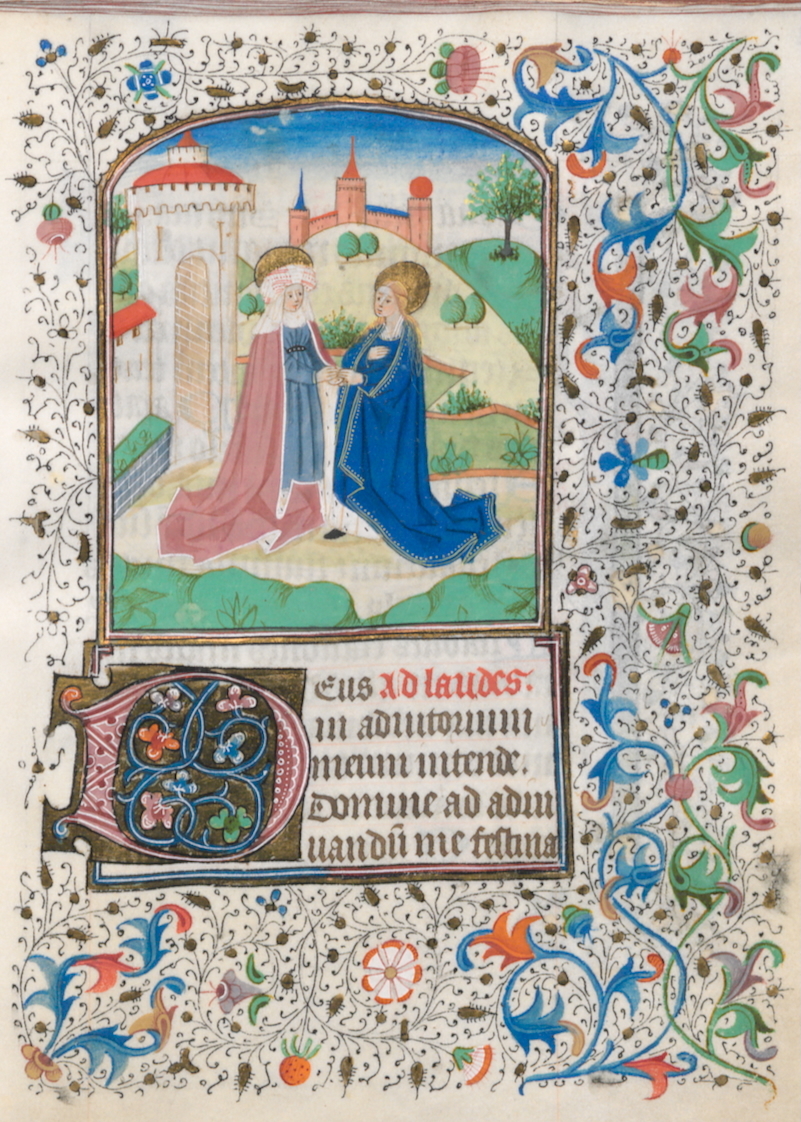 Deus Ad laudes.
in adiutorium
meum intende.
Domine ad adiu
uandū me festina